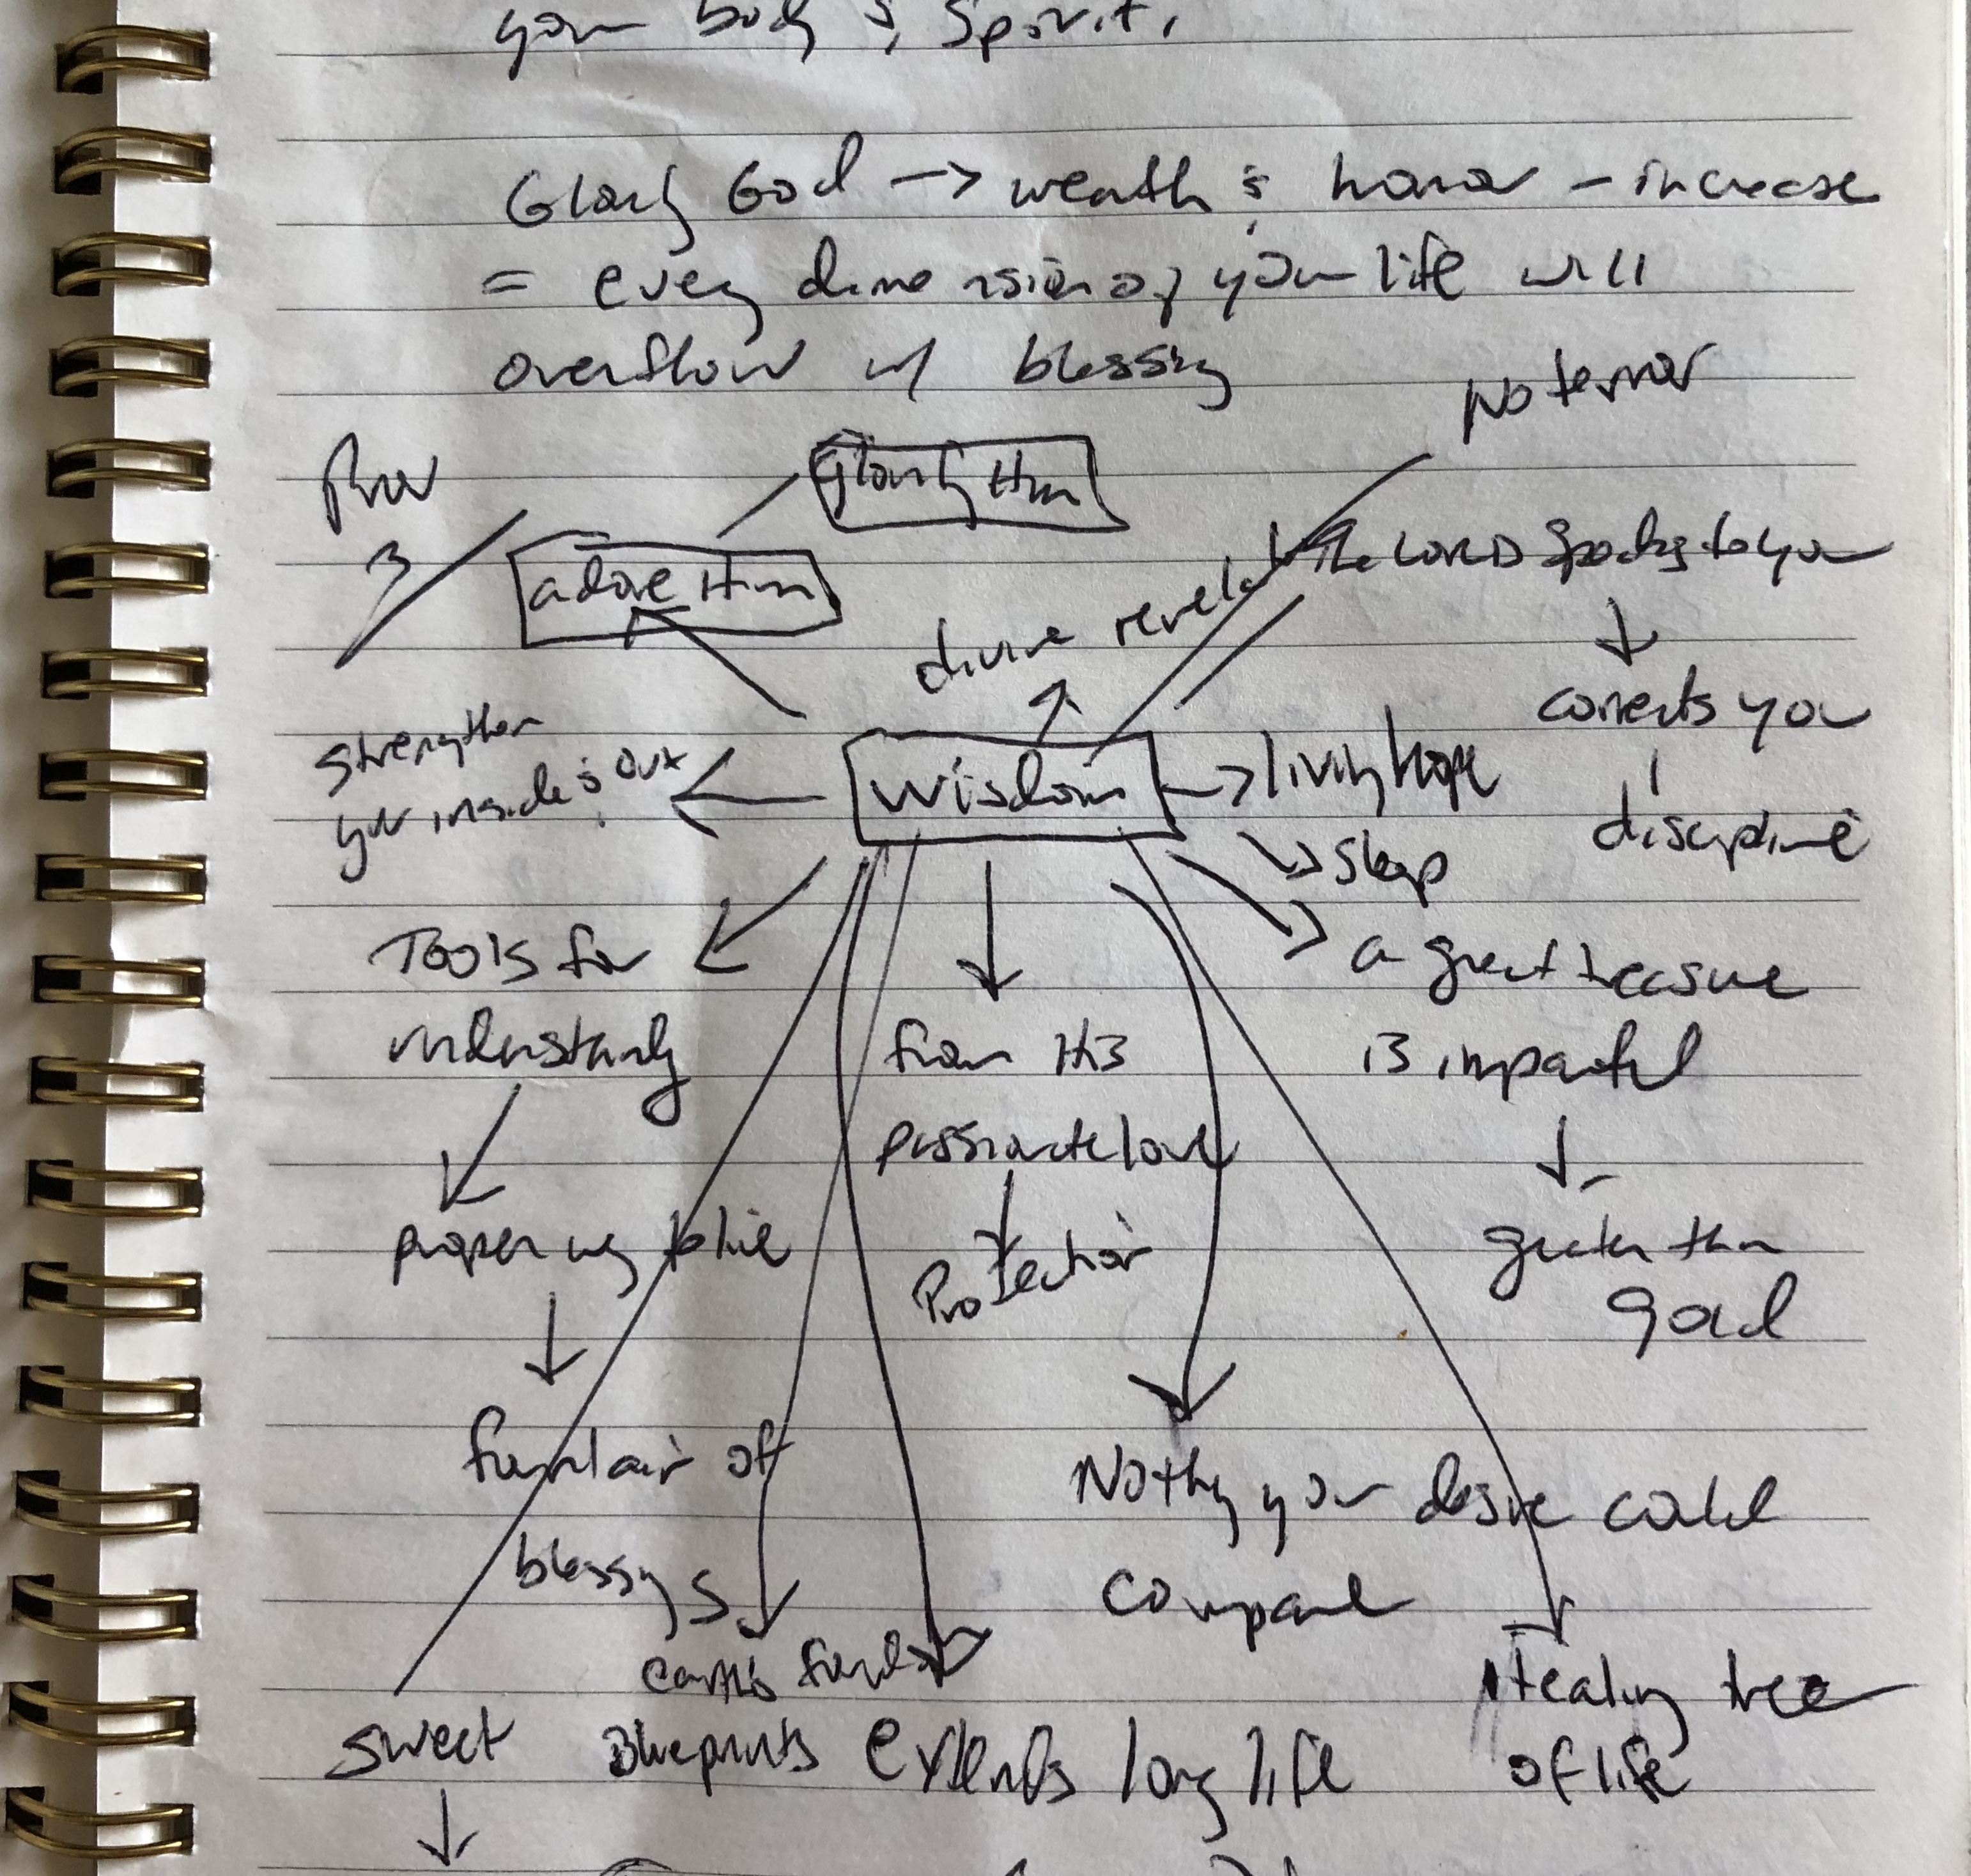 your body & Spirit.
Glorify God -> wealth & honor - increase
= every dimension of your life will
overflow w/ blessing
No terror
Prov
3
Glorify Him
adore Him
The LORD speaks to you
divine revelat
corrects you
discipline
strengthen
your inside & out
Wisdom
living hope
sleep
Tools for
understandg
a great treasure
is imparted
from His
passionate love
proper way to live
Protection
greater than
gold
fountain of
blessings
Nothing your desire could
compare
earth's
sweet
Blueprints
extends long life
Healing tree
of life